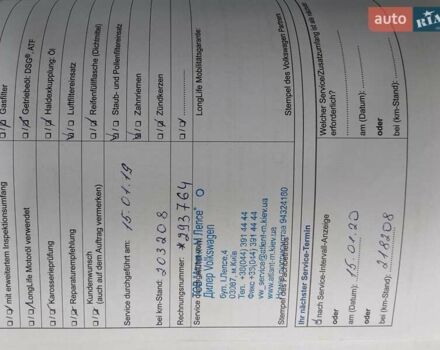 auto
RIA
□/□ mit erweitertem Inspektionsumfang
□/□ LongLife Motoröl verwendet
□/□ Karosserieprüfung
□/□ Reparaturempfehlung
□/□ Kundenwunsch
(auch auf dem Auftrag vermerken)
Service durchgeführt am: 15.01.19
bei km-Stand: 203208
Rechnungsnummer: *293764
Дилер Volkswagen
бул. І.Лепсе,4
03067, м.Київ
Тел. +30(044) 391 44 44
vw_service@atlant-m.kiev.ua
www.atlant-m.kiev.ua
94324180
Stempel des Fachbetriebs
Ihr nächster Service-Termin
nach Service-Intervall-Anzeige
oder
am (Datum): 15.01.20
oder
bei (km-Stand): 218208
Gasfilter
□/□ Getriebeöl: DSG®, ATF
□/□ Haldexkupplung: Öl
□/□ Luftfiltereinsatz
□/□ Reifenfüllflasche (Dichtmittel)
□/□ Staub- und Pollenfiltereinsatz
□/□ Zahnriemen
□/□ Zündkerzen
□/□
LongLife Mobilitätsgarantie:
Stempel des Volkswagen Partners
Welcher Service/Zusatzumfang ist als
erforderlich?
am (Datum):
oder
bei (km-Stand):